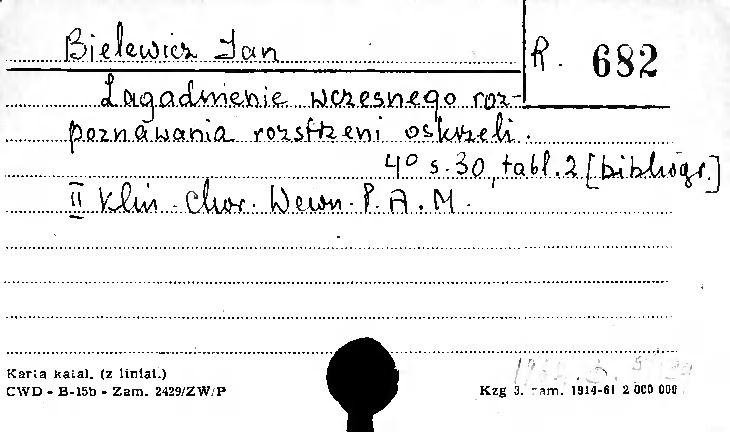 Bielewicz Jan
R. 682
Zagadnienie wczesnego roz-
poznawania rozstrzeni oskrzeli.
4° s. 30, tabl. 2 [bibliogr.]
II Klin. Chor. Wewn. P. A. M.
Karta katal. (z liniat.)
CWD - B-15b - Zam. 2429/ZW/P
Kzg 3. zam. 1914-61 2 000 000